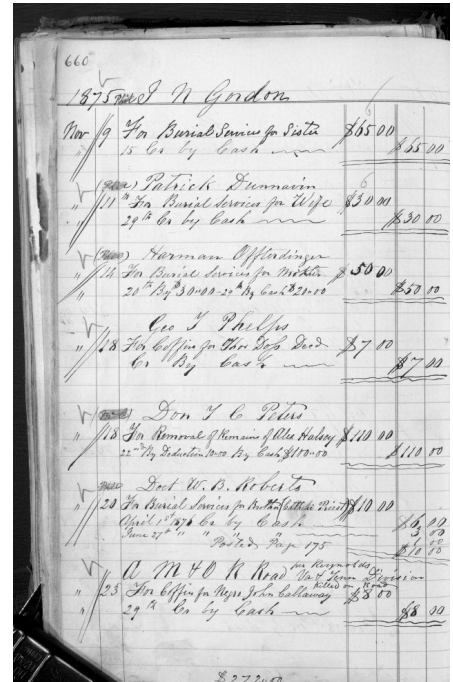 660
1875 J N Gordon
Nov 9 For Burial Services for Sister $65 00
" 15 Cr by Cash $65 00
Patrick Dunnavin
" 11th For Burial Services for Wife $30 00
" 29th Cr by Cash $30 00
Harman Offterdinger
" 14 For Burial Services for $50 00
" 20th By $30.00 - 29th By Cash $20.00 $50 00
Geo T Phelps
" 18 For Coffin for Thos Doss Decd $7 00
Cr By Cash $7 00
Don T C Peters
" 18 For Removal of Remains of Alex Halsey $110 00
22nd By Deduction 10.00 By Cash $100.00 $110 00
Doct W. B. Roberts
" 20 For Burial Services for Catholic Priest $10 00
April 1st 1876 Cr by Cash $6 00
June 27th " " " 3 00
" Posted Page 175 1 00
$10 00
A M & O R Road for Reynolds Va & Tenn Division
" 25 For Coffin for Negro John Callaway Killed on Road $8 00
" 29th Cr by Cash $8 00
$272.00